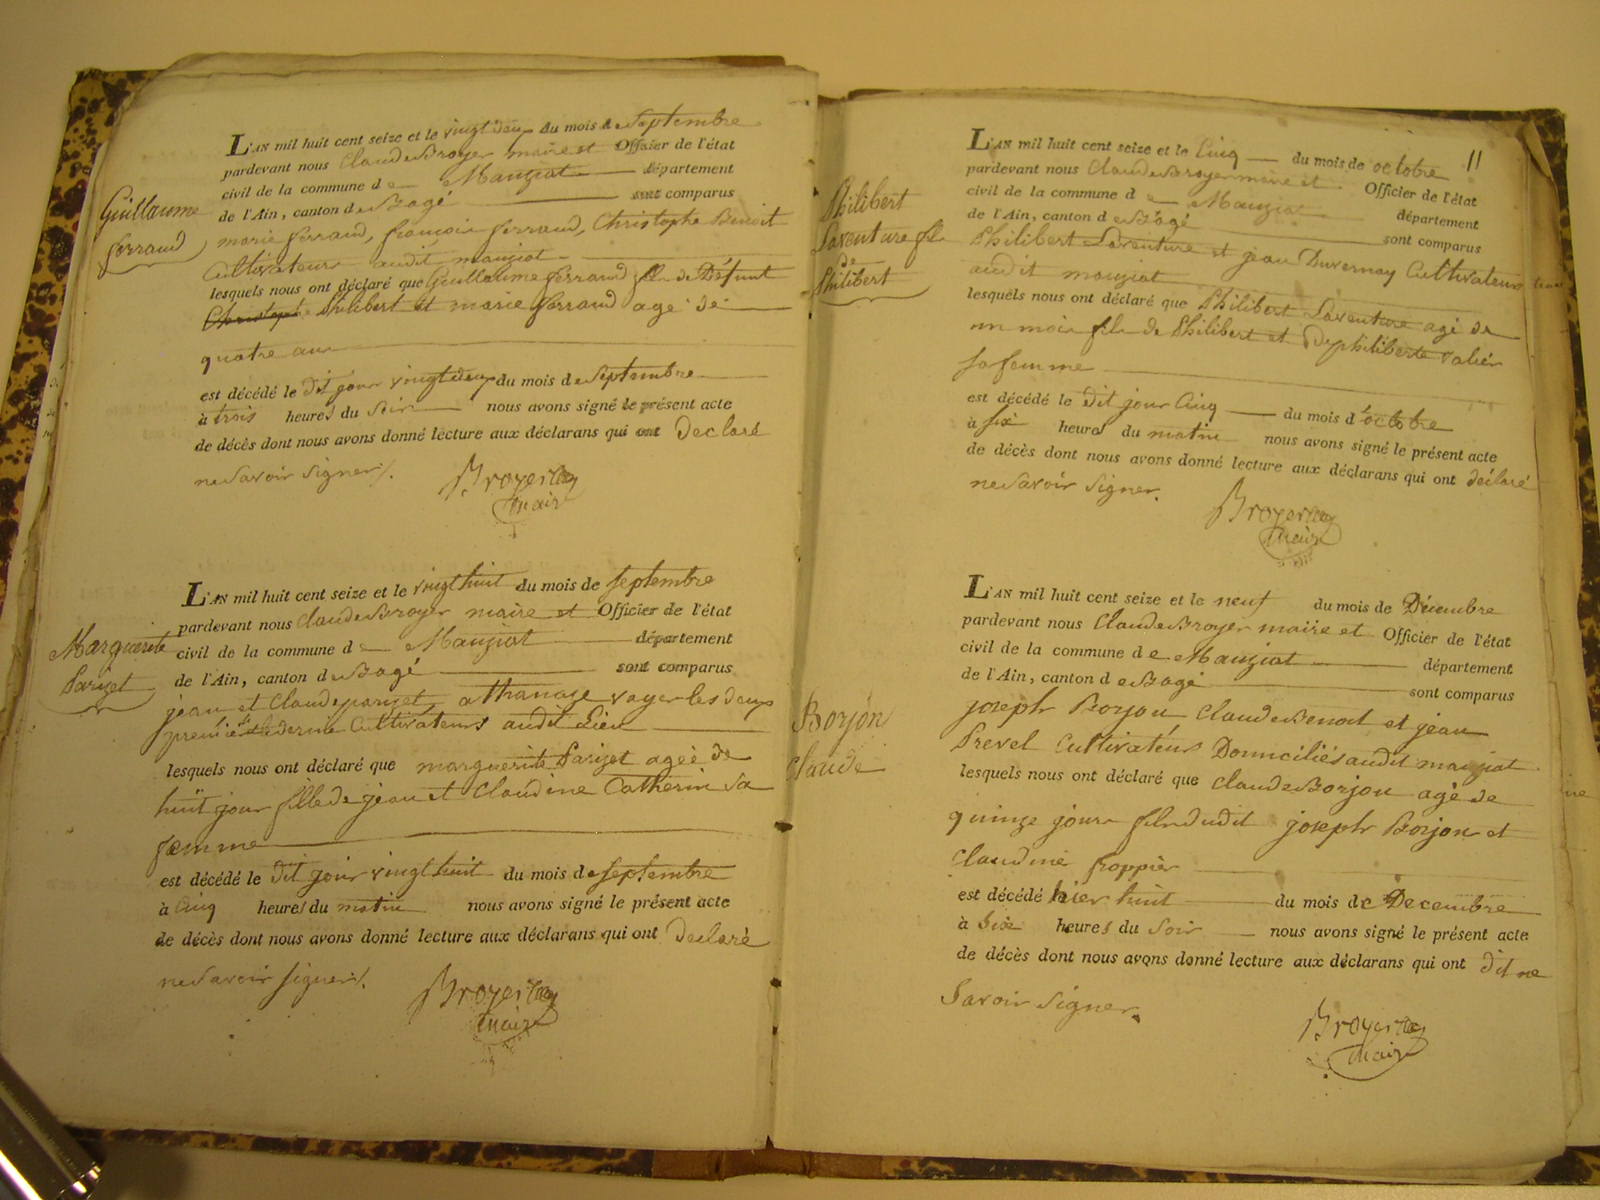 Guillaume
ferraud
L'AN mil huit cent seize et le vingt deux du mois de Septembre
pardevant nous Claude Broyer maire et Officier de l'état
civil de la commune de Manziat département
de l'Ain, canton de Bagé sont comparus
marie ferraud, françois ferraud, Christophe Benoit
Cultivateurs audit manziat
lesquels nous ont déclaré que Guillaume ferraud fils de Défunt
Christophe Philibert et marie ferraud agé de
quatre ans
est décédé le dit jour vingt deux du mois de Septembre
à trois heures du Soir nous avons signé le présent acte
de décès dont nous avons donné lecture aux déclarans qui ont Declaré
ne Savoir Signer.
Broyer
Maire
Marguerite
Parizet
L'AN mil huit cent seize et le vingt huit du mois de Septembre
pardevant nous Claude Broyer maire et Officier de l'état
civil de la commune de Manziat département
de l'Ain, canton de Bagé sont comparus
jean et Claude parizet athanaze voyer les deux
cultivateurs audit Lieu
lesquels nous ont déclaré que marguerite Parizet ageé de
huit jour fille de jean et Claudine Catherin Sa
femme
est décédé le dit jour vingt huit du mois de Septembre
à Cinq heures du matin nous avons signé le présent acte
de décès dont nous avons donné lecture aux déclarans qui ont Declaré
ne Savoir signer.
Broyer
Maire
11
Philibert
Laventure fils
de
Philibert
L'AN mil huit cent seize et le Cinq du mois de octobre
pardevant nous Claude Broyer maire et Officier de l'état
civil de la commune de Manziat département
de l'Ain, canton de Bagé sont comparus
Philibert Laventure et jean Duvernay Cultivateurs
audit manziat
lesquels nous ont déclaré que Philibert Laventure agé de
un mois fils de Philibert et de philiberte
sa femme
est décédé le dit jour Cinq du mois d'octobre
à six heures du matin nous avons signé le présent acte
de décès dont nous avons donné lecture aux déclarans qui ont déclaré
ne Savoir Signer.
Broyer
Maire
Borjon
Claude
L'AN mil huit cent seize et le neuf du mois de Décembre
pardevant nous Claude Broyer maire et Officier de l'état
civil de la commune de Manziat département
de l'Ain, canton de Bagé sont comparus
joseph Borjon Claude Benoit et jean
Prevel Cultivateurs Domiciliés audit manziat
lesquels nous ont déclaré que Claude Borjon agé de
quinze jours fils dudit joseph Borjon et
Claudine froppier
est décédé hier huit du mois de Decembre
à Six heures du Soir nous avons signé le présent acte
de décès dont nous avons donné lecture aux déclarans qui ont dit ne
Savoir Signer.
Broyer
Maire